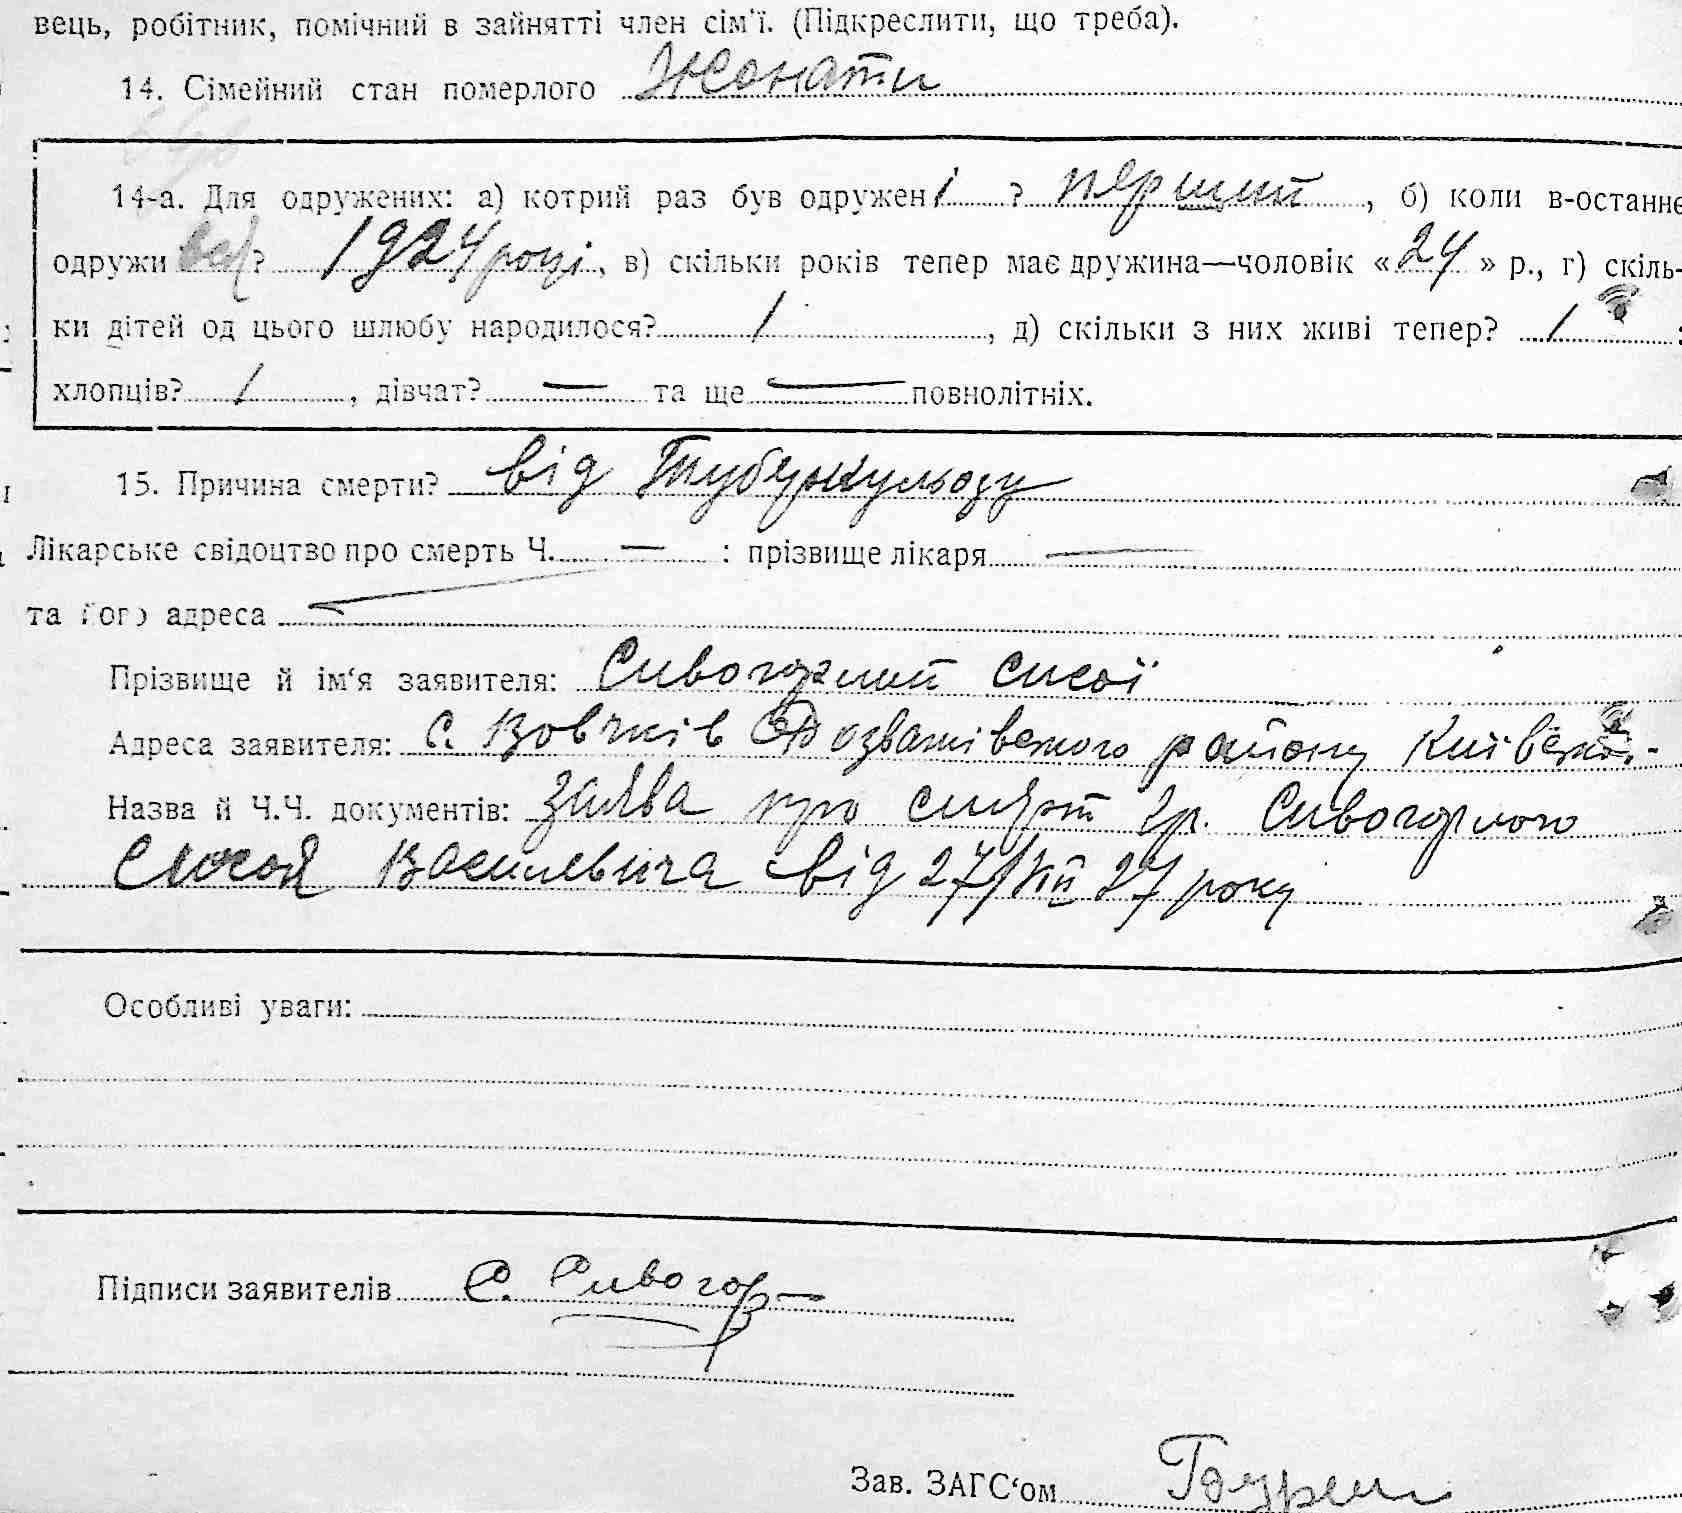 вець, робітник, помічний в зайнятті член сім'ї. (Підкреслити, що треба).
14. Сімейний стан померлого Жонати
14-а. Для одружених: а) котрий раз був одружен 1 ? перший, б) коли в-останнє
одружи вся? 1924 році, в) скільки років тепер має дружина—чоловік «24» р., г) скіль-
ки дітей од цього шлюбу народилося? 1, д) скільки з них живі тепер? 1 :
хлопців? 1, дівчат? — та ще — повнолітніх.
15. Причина смерти? від Туберкульозу
Лікарське свідоцтво про смерть Ч. — : прізвище лікаря —
та його адреса —
Прізвище й ім'я заявителя: Сивогорний Сисої
Адреса заявителя: с. Вовчків Розважівского району Київско.-
Назва й Ч.Ч. документів: заява про смерт гр. Сивогорного
Сисоя Василевича від 27/VIII 27 року
Особливі уваги:
Підписи заявителів С. Сивогор—
Зав. ЗАГС'ом